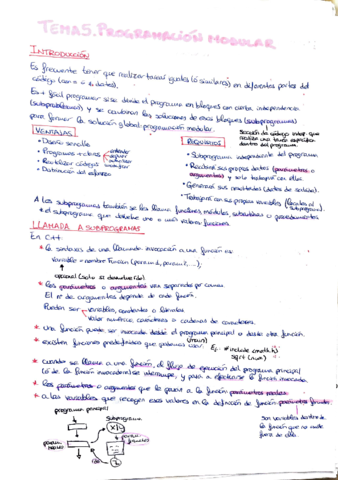 TEMA 5. PROGRAMACIÓN MODULAR
INTRODUCCIÓN
Es frecuente tener que realizar tareas iguales (ó similares) en diferentes partes del
código (con ≠ datos).
Es + fácil programar si se divide el programa en bloques con cierta independencia
(subproblemas) y se combinan las soluciones de esos bloques (subprogramas)
para formar la solución global: programación modular.
sección de código que
realiza una tarea específica
dentro del programa
VENTAJAS
· Diseño sencillo
· Programas + claros
entender
modificar
· Reutilizar códigos
· División del esfuerzo
REQUISITOS
· Subprograma independiente del programa
· Recibirá sus propios datos (parámetros o
argumentos) y solo trabajará con ellos.
· Generará sus resultados (datos de salida).
· Trabajará con sus propias variables (locales al
subprograma).
A los subprogramas también se les llama funciones, módulos, subrutinas o procedimientos
el subprograma que devuelve uno o más valores: funciones.
LLAMADA A SUBPROGRAMAS
En C++
* la sintaxis de una llamada/invocación a una función es:
variable = nombreFuncion (param1, param2, ...);
opcional (solo si devuelve algo)
* los parámetros o argumentos van separados por comas.
El nº de argumentos depende de cada función.
Pueden ser
variables, constantes o literales
valor numérico, caracteres o cadenas de caracteres.
* una función puede ser invocada desde el programa principal o desde otra función.
* existen funciones predefinidas que podemos usar.
Ej. #include <math.h>
sqrt (num)
* cuando se llama a una función, el flujo de ejecución del programa principal
(ó de la función invocadora) se interrumpe, y pasa a ejecutarse la función invocada.
* los parámetros o argumentos que le pasan a la función: parámetros reales
* a las variables que recogen esos valores en la definición de función: parámetros formales
son variables dentro de
la función que no existe
fuera de ella.
programa principal
Subprograma